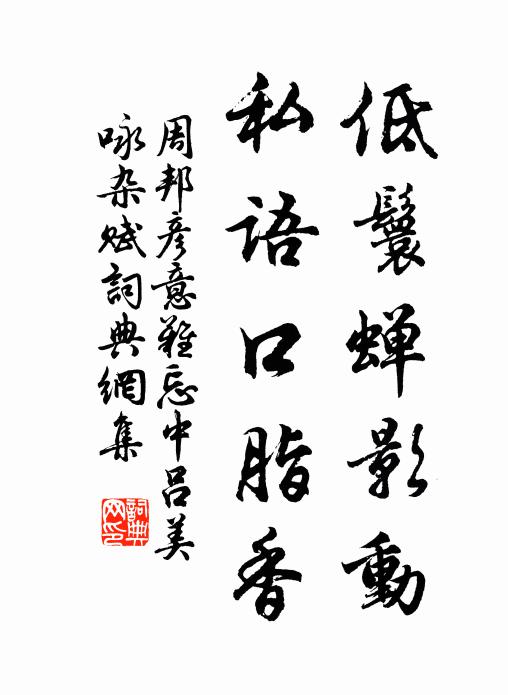 低鬟蝉影動
私語口脂香
周邦彦意難忘中吕美
咏杂赋詞典網集
詞典网印